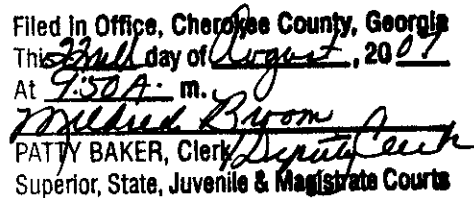 Filed In Office, Cherokee County, Georgia
This 22nd day of August, 2007
At 9:50 A. m.
Mildred Broom
PATTY BAKER, Clerk/Deputy Clerk
Superior, State, Juvenile & Magistrate Courts